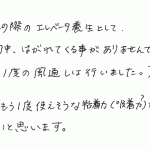 の際のエレベータ養生として、
中、はがれてくる事がありませんで
1度の風通しは行いました。
もう1度使えそうな粘着力(吸着力?)
いと思います。